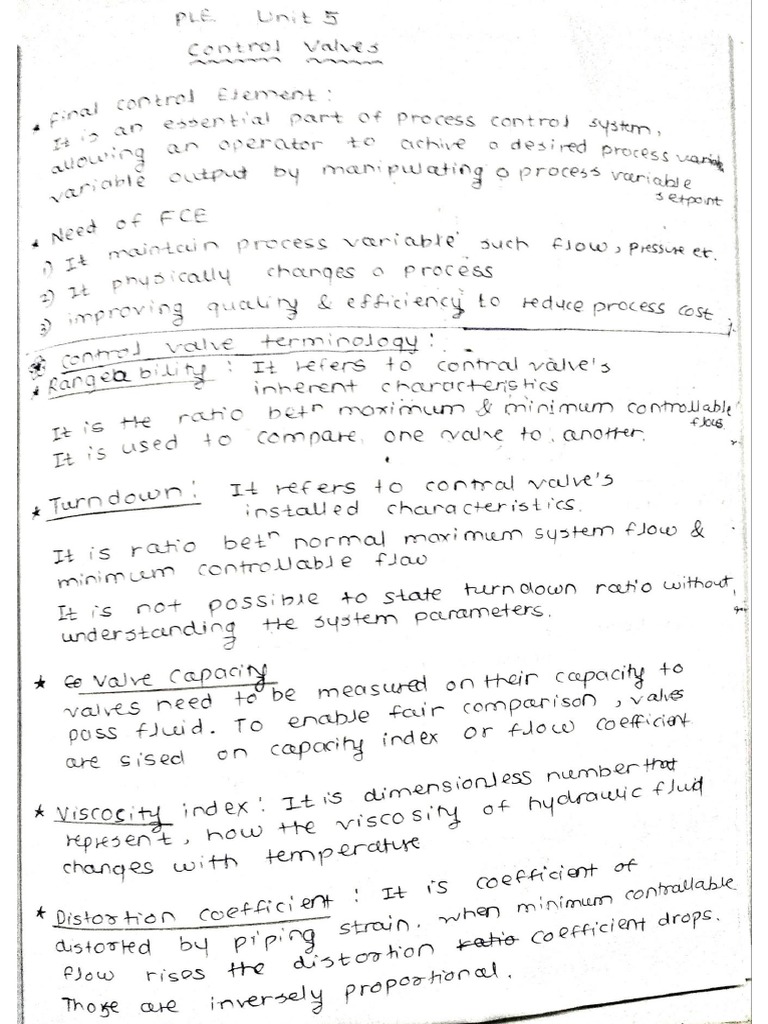 PLE Unit 5
Control Valves
* Final control Element:
It is an essential part of process control system,
allowing an operator to achive a desired process
variable output by manipulating a process variable
setpoint
* Need of FCE
1) It maintain process variable such flow, pressure et.
2) It physically changes a process
3) improving quality & efficiency to reduce process cost
* Control valve terminology:
* Rangeability: It refers to control valve's
inherent characteristics
It is the ratio betn maximum & minimum controllable
flows
It is used to compare one valve to another.
* Turndown: It refers to control valve's
installed characteristics.
It is ratio betn normal maximum system flow &
minimum controllable flow
It is not possible to state turndown ratio without
understanding the system parameters.
* Valve capacity
valves need to be measured on their capacity to
pass fluid. To enable fair comparison, valves
are sised on capacity index or flow coefficient
* Viscosity index: It is dimensionless number that
represent, how the viscosity of hydraulic fluid
changes with temperature
* Distortion coefficient: It is coefficient of
distorted by piping strain. when minimum controllable
flow rises the distortion ratio coefficient drops.
Those are inversely proportional.